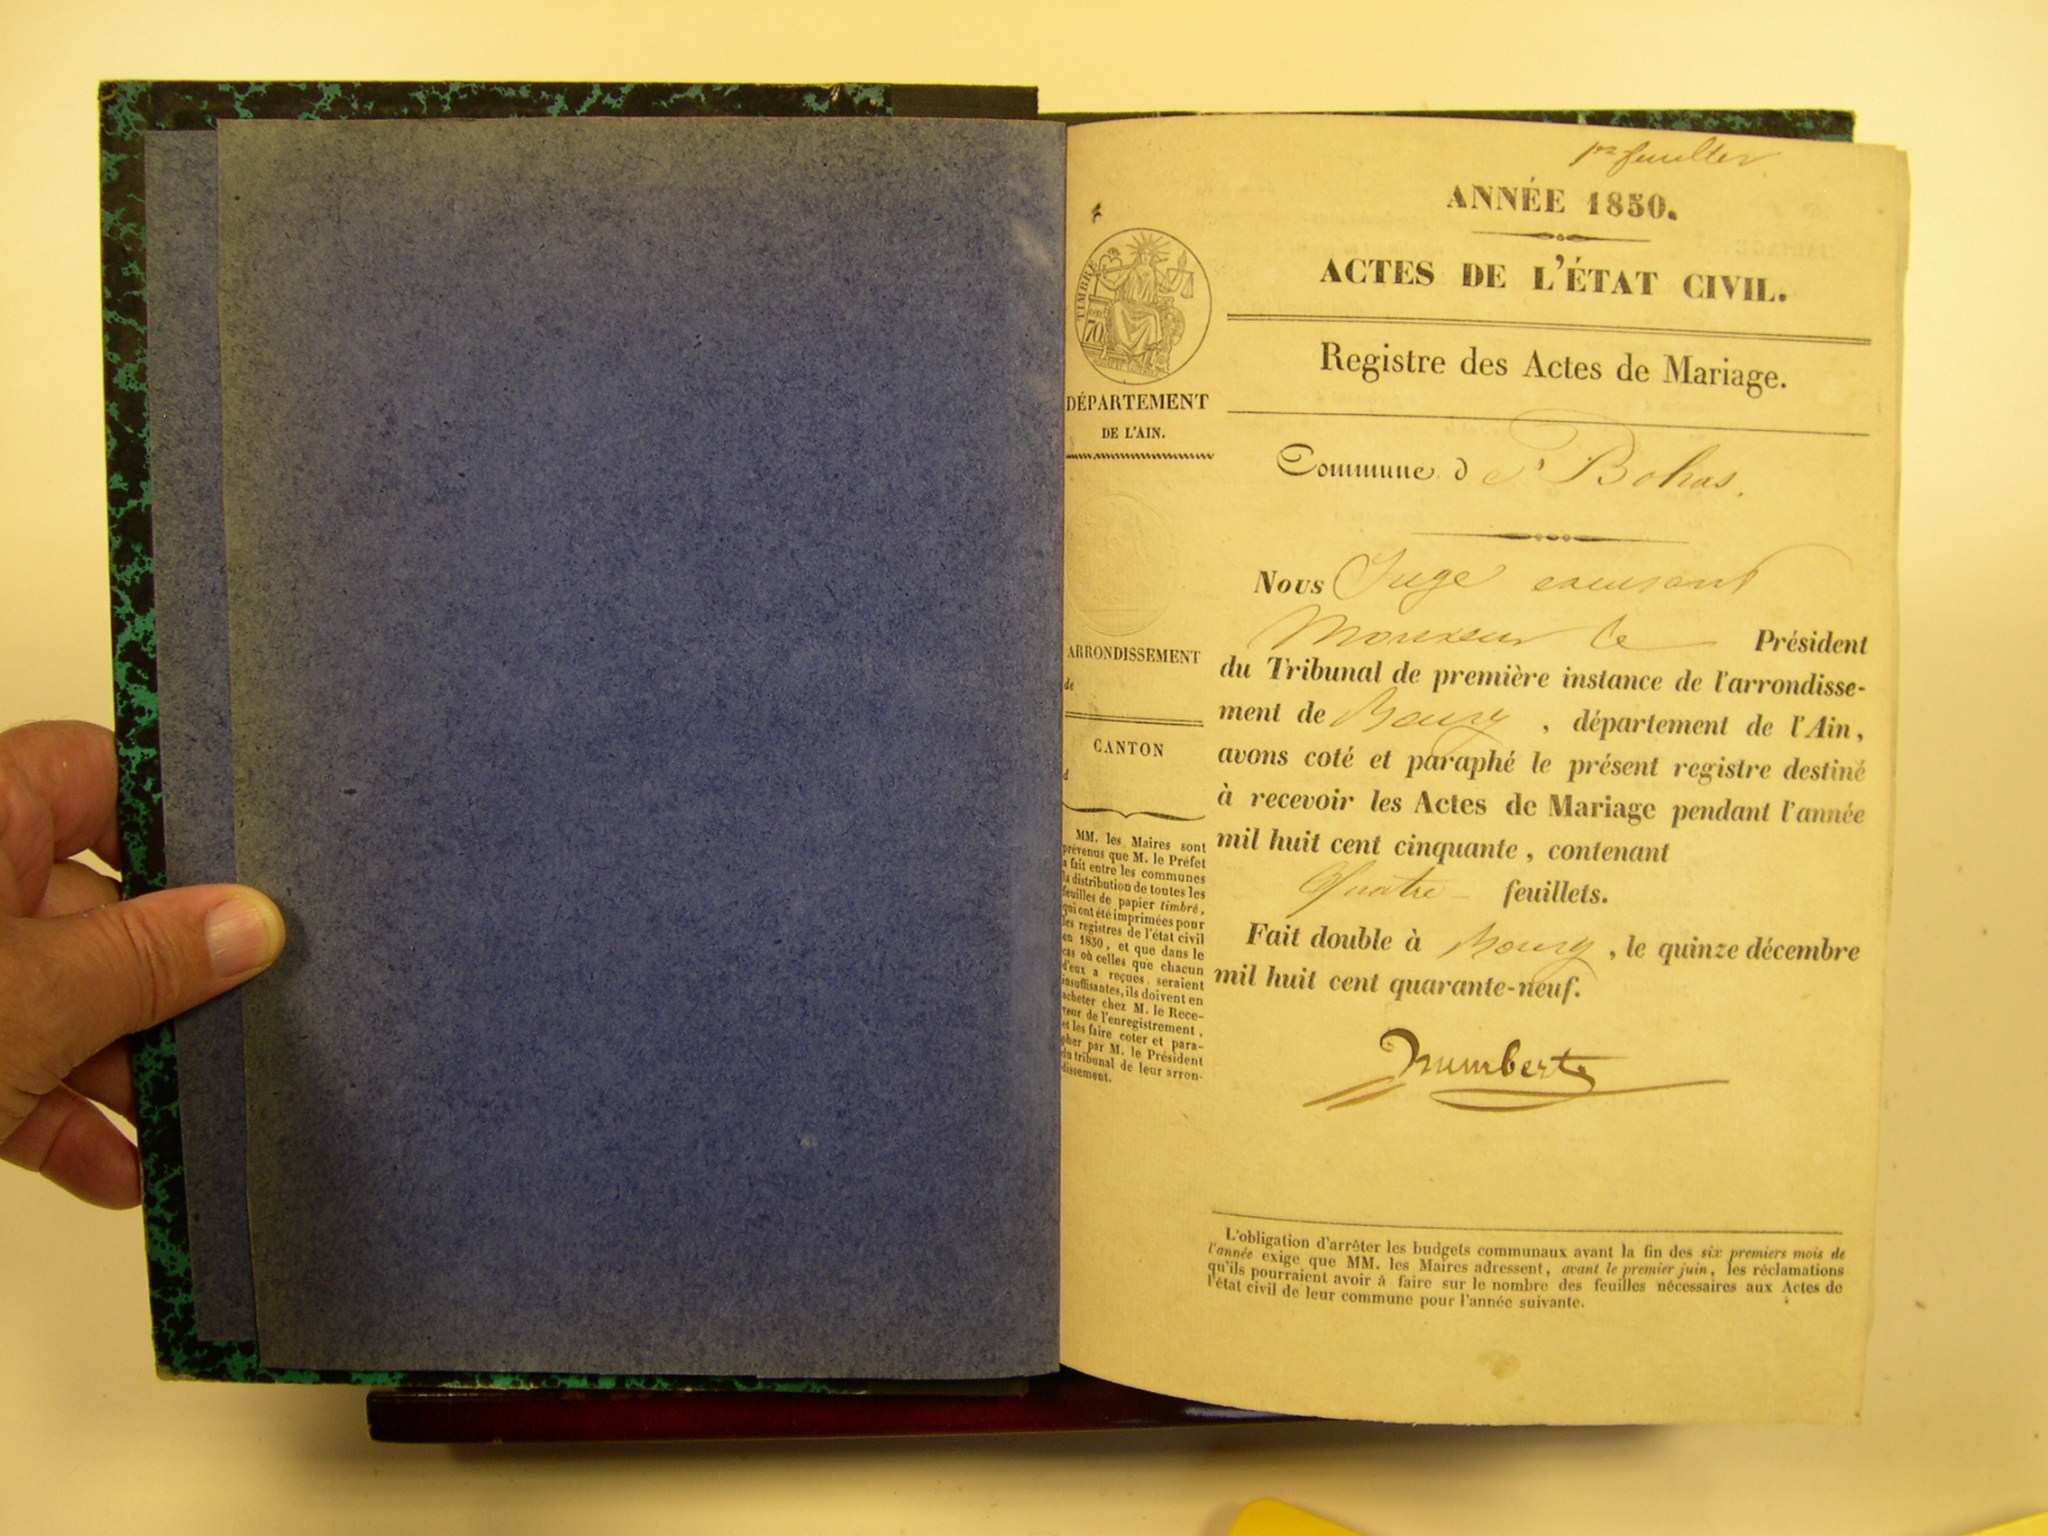 1er feuillet
ANNÉE 1850.
ACTES DE L'ÉTAT CIVIL.
Registre des Actes de Mariage.
Commune d e Bohas.
Nous Juge excusant
Monsieur le Président
du Tribunal de première instance de l'arrondisse-
ment de Bourg, département de l'Ain,
avons coté et paraphé le présent registre destiné
à recevoir les Actes de Mariage pendant l'année
mil huit cent cinquante, contenant
Quatre feuillets.
Fait double à Bourg, le quinze décembre
mil huit cent quarante-neuf.
TIMBRE
70
DÉPARTEMENT
DE L'AIN.
ARRONDISSEMENT
de
CANTON
d
MM. les Maires sont
prévenus que M. le Préfet
a fait entre les communes
la distribution de toutes les
feuilles de papier timbré,
qui ont été imprimées pour
les registres de l'état civil
en 1850, et que dans le
cas où celles que chacun
d'eux a reçues, seraient
insuffisantes, ils doivent en
acheter chez M. le Rece-
veur de l'enregistrement,
et les faire coter et para-
pher par M. le Président
du tribunal de leur arron-
dissement.
L'obligation d'arrêter les budgets communaux avant la fin des six premiers mois de
l'année exige que MM. les Maires adressent, avant le premier juin, les réclamations
qu'ils pourraient avoir à faire sur le nombre des feuilles nécessaires aux Actes de
l'état civil de leur commune pour l'année suivante.